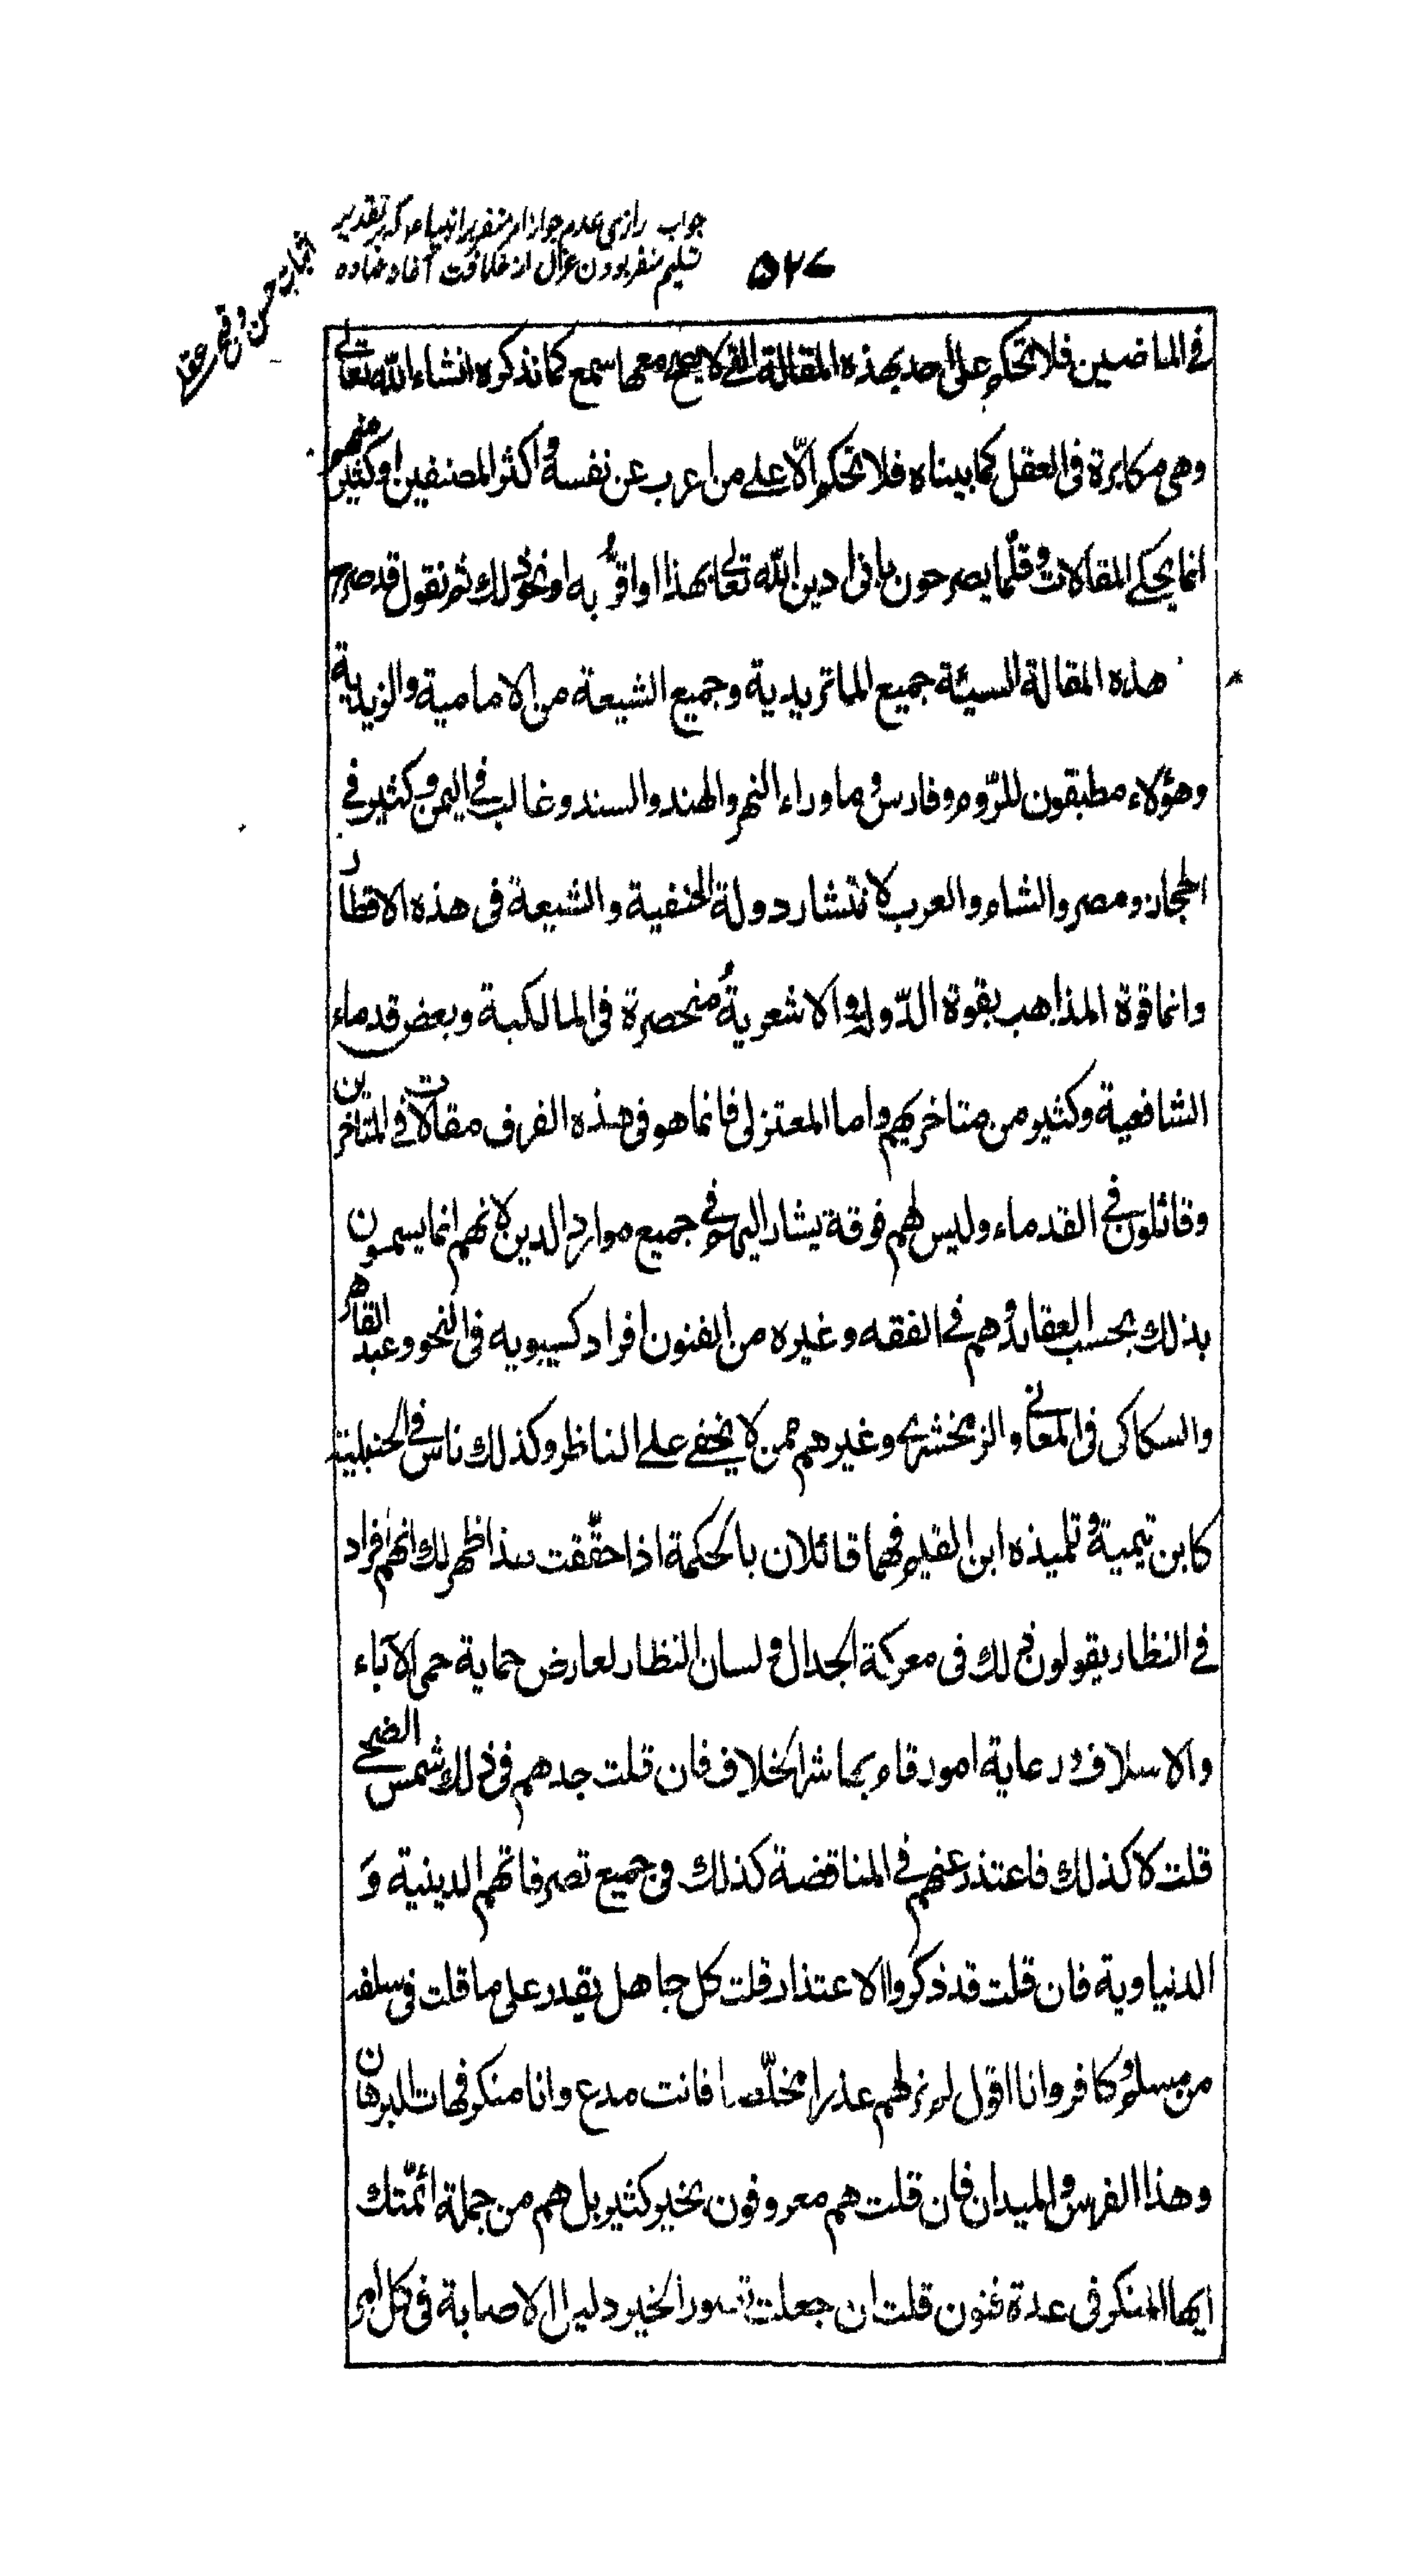 جواب رازی عدم جواز امر منفر بر انبیاء که بر تقدیر
تسلیم منفر بودن عزل از خلافت آغاز نهاده
۵۲۷
انجا بر حسن و قبح عقل
فی الماضیین فلا تحکم علی احد بهذه المقالة التی لا یصح معها سمع کما نذکره انشاء الله تعالی
وهی مکابرة فی العقل کما بیناه فلا تحکم الّا علی من اعرب عن نفسه و اکثر المصنفین او کثیر منهم
انما یحکی المقالات و قلّما یصرحون بانی ادین الله تعالی بهذا او اقرُّ به او نحو ذلك ثم نقول قد صرح
هذه المقالة السیئة جمیع الماتریدیة و جمیع الشیعة من الامامیة والزیدیة
وهؤلاء مطبقون للرّوم و فارس و ماوراء النهر والهند والسند و غالب فی الیمن و کثیر فی
الحجاز و مصر والشام والعرب لانتشار دولة الحنفیة والشیعة فی هذه الاقطار
وانما قوة المذاهب بقوة الدّول و الاشعریةُ منحصرة فی المالکیة و بعض قدماء
الشافعیة و کثیر من متاخریهم و اما المعتزلی فانما هو فی هذه الفرق مقالات فی المتاخرین
و قائلون فی القدماء و لیس لهم فرقة یشار الیهم فی جمیع موارد الدین لانهم انما یسمون
بذلك بحسب العقائد و هم فی الفقه و غیره من الفنون افراد کسیبویه فی النحو و عبد القاهر
والسکاکی فی المعانی و الزمخشری و غیرهم ممن لا یخفی علی الناظر و کذلك ناس فی الحنبلیة
کابن تیمیة و تلمیذه ابن القیم فهما قائلان بالحکمة اذا حقّقت هذا ظهر لك انهم افراد
فی النظار یقولون ذلك فی معرکة الجدال و لسان النظار لعارض حمایة حمی الآباء
والاسلاف و رعایة امور قام بها شر الخلاف فان قلت جدهم فی ذلك شمس الضحی
قلت لا کذلك فاعتذر عنهم فی المناقضة کذلك فی جمیع تصرفاتهم الدینیة وَ
الدنیاویة فان قلت قد ذکروا الاعتذار قلت کل جاهل یقدر علی ما قلت فی سلفه
من مسلم و کافر و انا اقول لم نر لهم عذرا مخلّصا فانت مدع و انا منکر فهات البرهان
و هذا الفرس و المیدان فان قلت هم معروفون بخیر کثیر بل هم من جملة ائمّتك
ایها المنکر فی عدة فنون قلت ان جعلت الخیر دلیل الاصابة فی کل امر